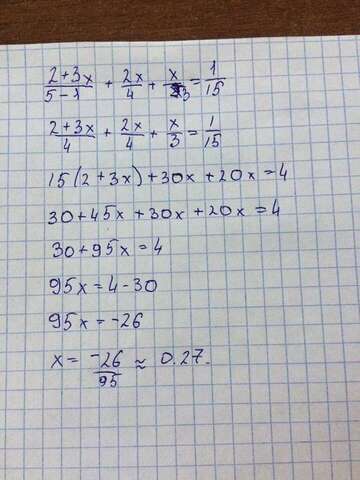 (2+3x)/(5-1) + 2x/4 + x/3 = 1/15
(2+3x)/4 + 2x/4 + x/3 = 1/15
15(2+3x)+30x+20x=4
30+45x+30x+20x=4
30+95x=4
95x=4-30
95x=-26
x= -26/95 ≈ 0.27.